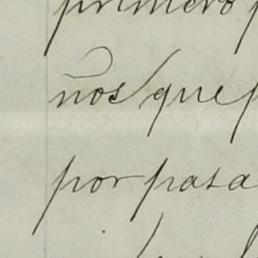 primero p
nos que p
por pasa